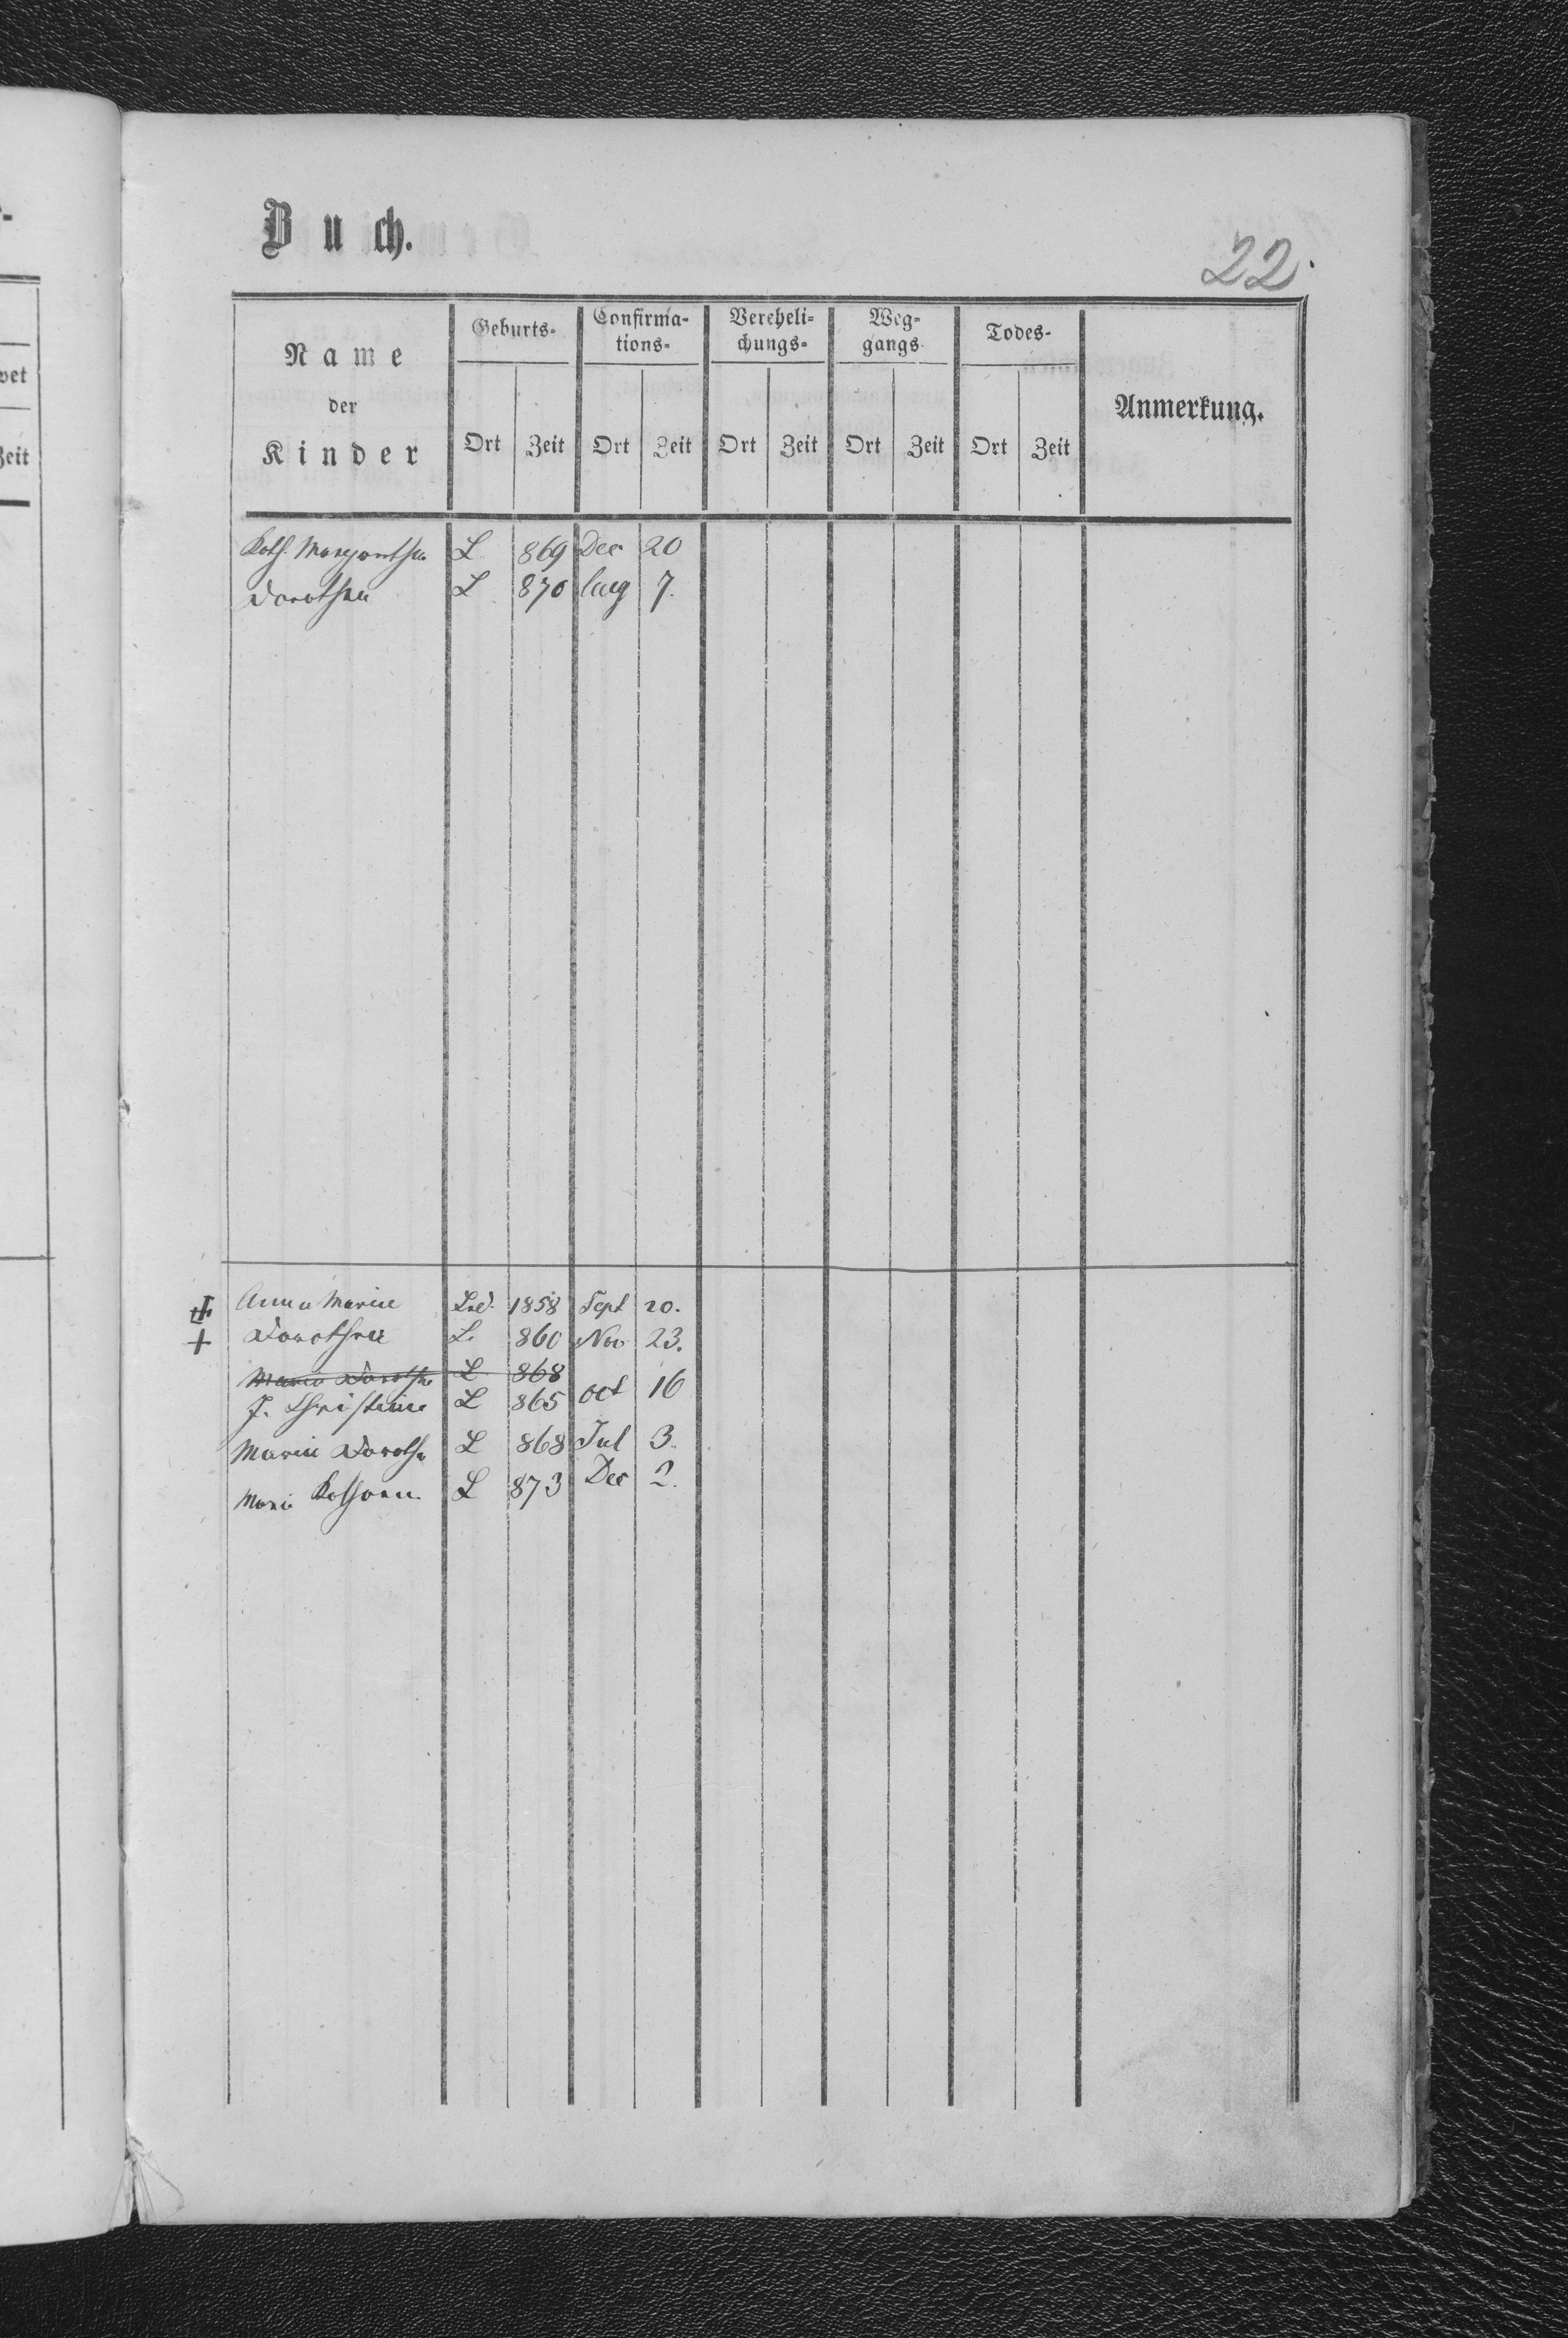 Buch.
22.
Name der Kinder | Geburts- Ort Zeit | Confirmations- Ort Zeit | Verehelichungs- Ort Zeit | Weggangs- Ort Zeit | Todes- Ort Zeit | Anmerkung.
Kath. Margaretha L 869 Dec 20
Dorothea L 870 Aug 7.
Anna Maria Lud. 1858 Sept 20.
+ Dorothea L. 860 Nov 23.
Maria Doroth L 868
J. Christine L 865 Oct 16
Maria Doroth L 868 Jul 3.
Mari Kathar L 873 Dec 2.
vet
Zeit